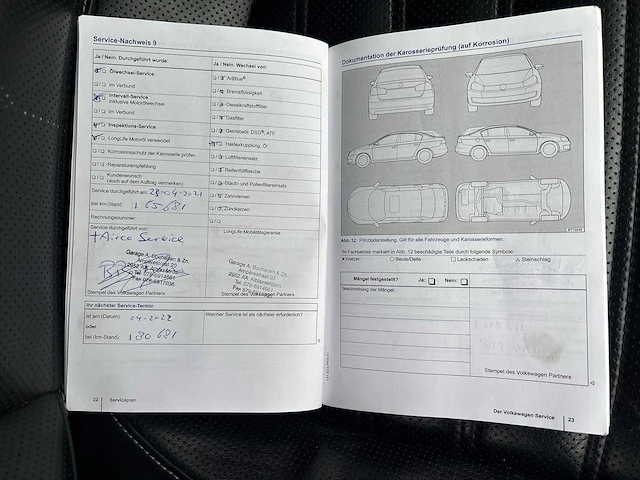 Service-Nachweis 9
Ja / Nein, Durchgeführt wurde:
Ja / Nein, Wechsel von:
Ölwechsel-Service
im Verbund
Intervall-Service
inklusive Motorölwechsel
im Verbund
Inspektions-Service
LongLife Motoröl verwendet
Korrosionsschutz der Karosserie prüfen
Reparaturempfehlung
Kundenwunsch
(auch auf dem Auftrag vermerken)
AdBlue®
Bremsflüssigkeit
Dieselkraftstofffilter
Gasfilter
Getriebeöl: DSG®, ATF
Haldexkupplung: Öl
Luftfiltereinsatz
Reifenfüllflasche
Staub- und Pollenfiltereinsatz
Zahnriemen
Zündkerzen
Service durchgeführt am: 28-04-2021
bei km-Stand: 165681
Rechnungsnummer:
Service durchgeführt von:
+Airco Service
LongLife Mobilitätsgarantie:
Stempel des Volkswagen Partners
Stempel des Volkswagen Partners
Ihr nächster Service-Termin
ist am (Datum): 04-2022
oder
bei (km-Stand): 180681
Welcher Service ist als nächster erforderlich?
22 Serviceplan
Dokumentation der Karosserieprüfung (auf Korrosion)
Abb. 12 Prinzipdarstellung: Gilt für alle Fahrzeuge und Karosserieformen.
Ihr Fachbetrieb markiert in Abb. 12 beschädigte Teile durch folgende Symbole:
Kratzer ○ Beule/Delle □ Lackschaden △ Steinschlag
Mängel festgestellt? Ja: Nein:
Beschreibung der Mängel:
Stempel des Volkswagen Partners
Der Volkswagen Service 23